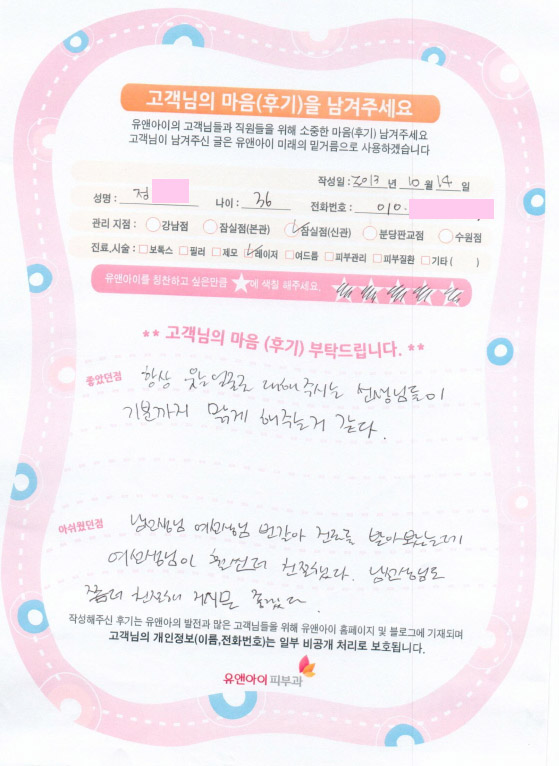 고객님의 마음(후기)을 남겨주세요
유앤아이의 고객님들과 직원들을 위해 소중한 마음(후기) 남겨주세요
고객님이 남겨주신 글은 유앤아이 미래의 밑거름으로 사용하겠습니다
작성일 : 2013 년 10 월 14 일
성명 : 정 나이 : 36 전화번호 : 010.
관리 지점 : 강남점 잠실점(본관) 잠실점(신관) 분당판교점 수원점
진료,시술 : 보톡스 필러 제모 레이저 여드름 피부관리 피부질환 기타 ( )
유앤아이를 칭찬하고 싶은만큼 ★에 색칠 해주세요.
** 고객님의 마음 (후기) 부탁드립니다. **
좋았던점 항상 웃는 얼굴로 대해주시는 선생님들이
기분까지 맑게 해주는거 같다.
아쉬웠던점 남선생님 여선생님 번갈아 진료를 받아봤는데
여선생님이 훨씬더 친절했다. 남선생님도
좀더 친절해 좋겠다.
작성해주신 후기는 유앤아의 발전과 많은 고객님들을 위해 유앤아이 홈페이지 및 블로그에 기재되며
고객님의 개인정보(이름,전화번호)는 일부 비공개 처리로 보호됩니다.
유앤아이 피부과